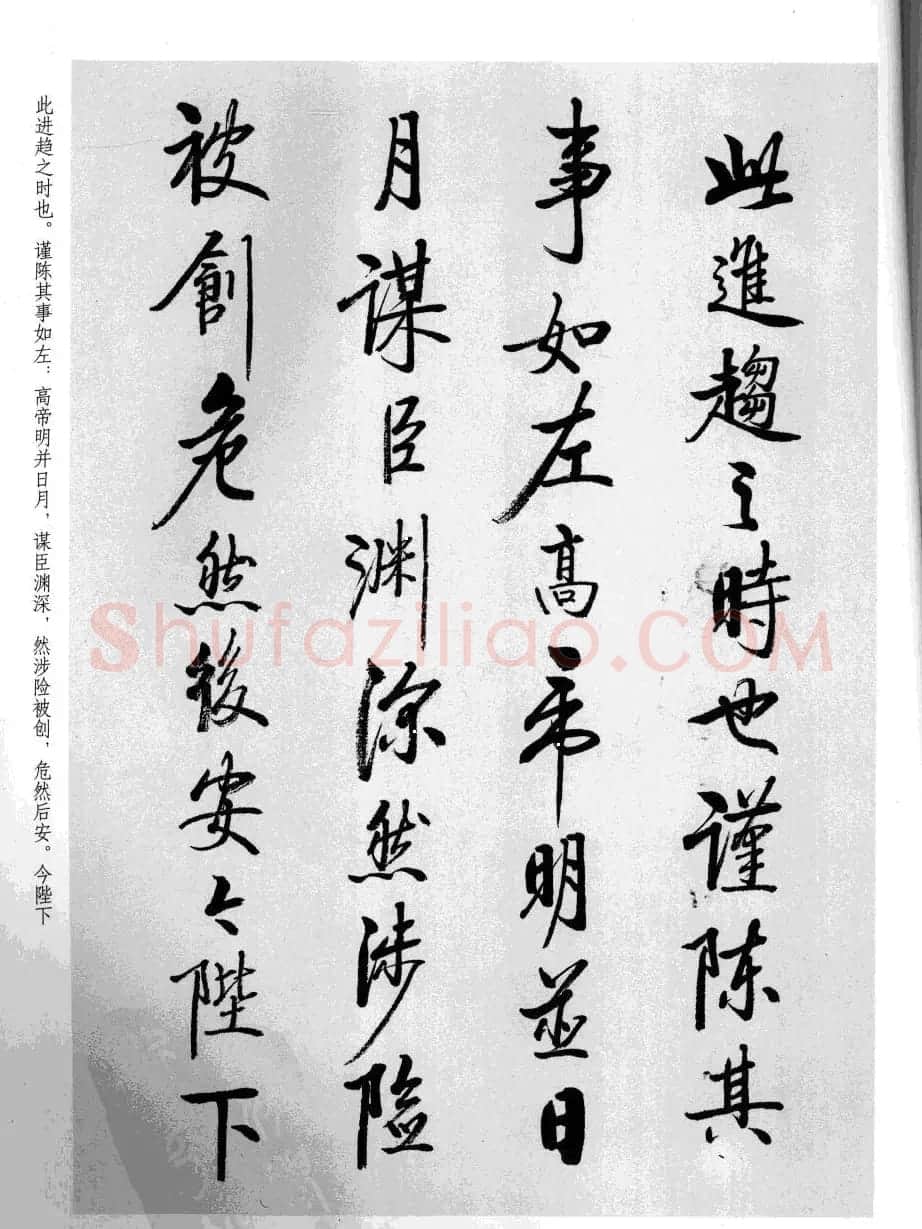 此進趨之時也謹陳其
事如左高帝明並日
月謀臣渊深然涉險
被創危然後安今陛下
此进趋之时也。谨陈其事如左：高帝明并日月，谋臣渊深，然涉险被创，危然后安。今陛下
Shufaziliao.COM